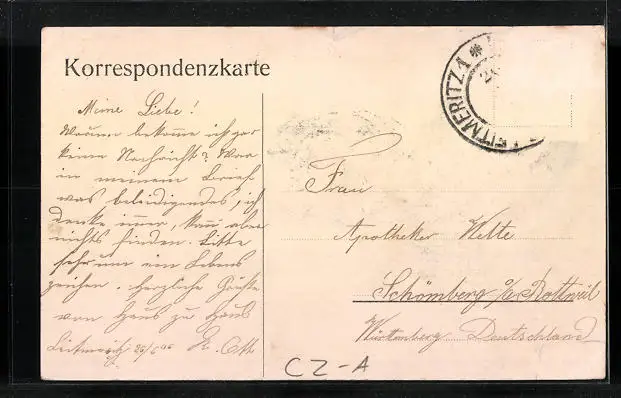 Korrespondenzkarte
LEITMERITZ 1 *
Meine Liebe!
Warum bekomme ich gar
keine Nachricht? War
in meinem Brief
was beleidigendes, ich
denke immer, kann aber
nichts finden. Bitte
sehr um ein Lebens
zeichen. Herzliche Grüße
von Haus zu Haus
Leitmeritz 26/6 06 R. Ott
Frau
Apotheker Wette
Schömberg o/a Rottweil
Württemberg Deutschland
CZ-A